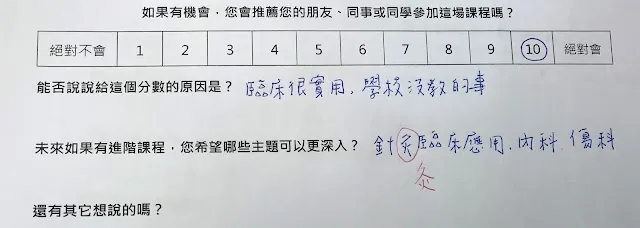 如果有機會，您會推薦您的朋友、同事或同學參加這場課程嗎？
絕對不會 1 2 3 4 5 6 7 8 9 10 絕對會
能否說說給這個分數的原因是？ 臨床很實用，學校沒教的事
未來如果有進階課程，您希望哪些主題可以更深入？ 針灸臨床應用，內科、傷科
灸
還有其它想說的嗎？